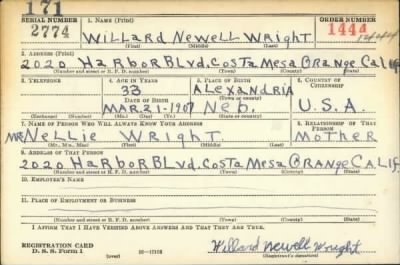 171
SERIAL NUMBER 1. NAME (Print) ORDER NUMBER
2774 Willard Newell Wright 1444 14444
(First) (Middle) (Last)
2. ADDRESS (Print)
2020 HarborBlvd. Costa Mesa Orange Calif
(Number and street or R. F. D. number) (Town) (County) (State)
3. TELEPHONE 4. AGE IN YEARS 5. PLACE OF BIRTH 6. COUNTRY OF CITIZENSHIP
33 Alexandria
(Town or county)
DATE OF BIRTH
MAR 21-1907 Neb. U.S.A.
(Exchange) (Number) (Mo.) (Day) (Yr.) (State or country)
7. NAME OF PERSON WHO WILL ALWAYS KNOW YOUR ADDRESS 8. RELATIONSHIP OF THAT PERSON
Mrs Nellie Wright Mother
(Mr., Mrs., Miss) (First) (Middle) (Last)
9. ADDRESS OF THAT PERSON
2020 HarborBlvd. Costa Mesa Orange Calif
(Number and street or R. F. D. number) (Town) (County) (State)
10. EMPLOYER'S NAME
11. PLACE OF EMPLOYMENT OR BUSINESS
(Number and street or R. F. D. number) (Town) (County) (State)
I AFFIRM THAT I HAVE VERIFIED ABOVE ANSWERS AND THAT THEY ARE TRUE.
REGISTRATION CARD
D. S. S. Form 1
Willard Newell Wright
(Registrant's signature)